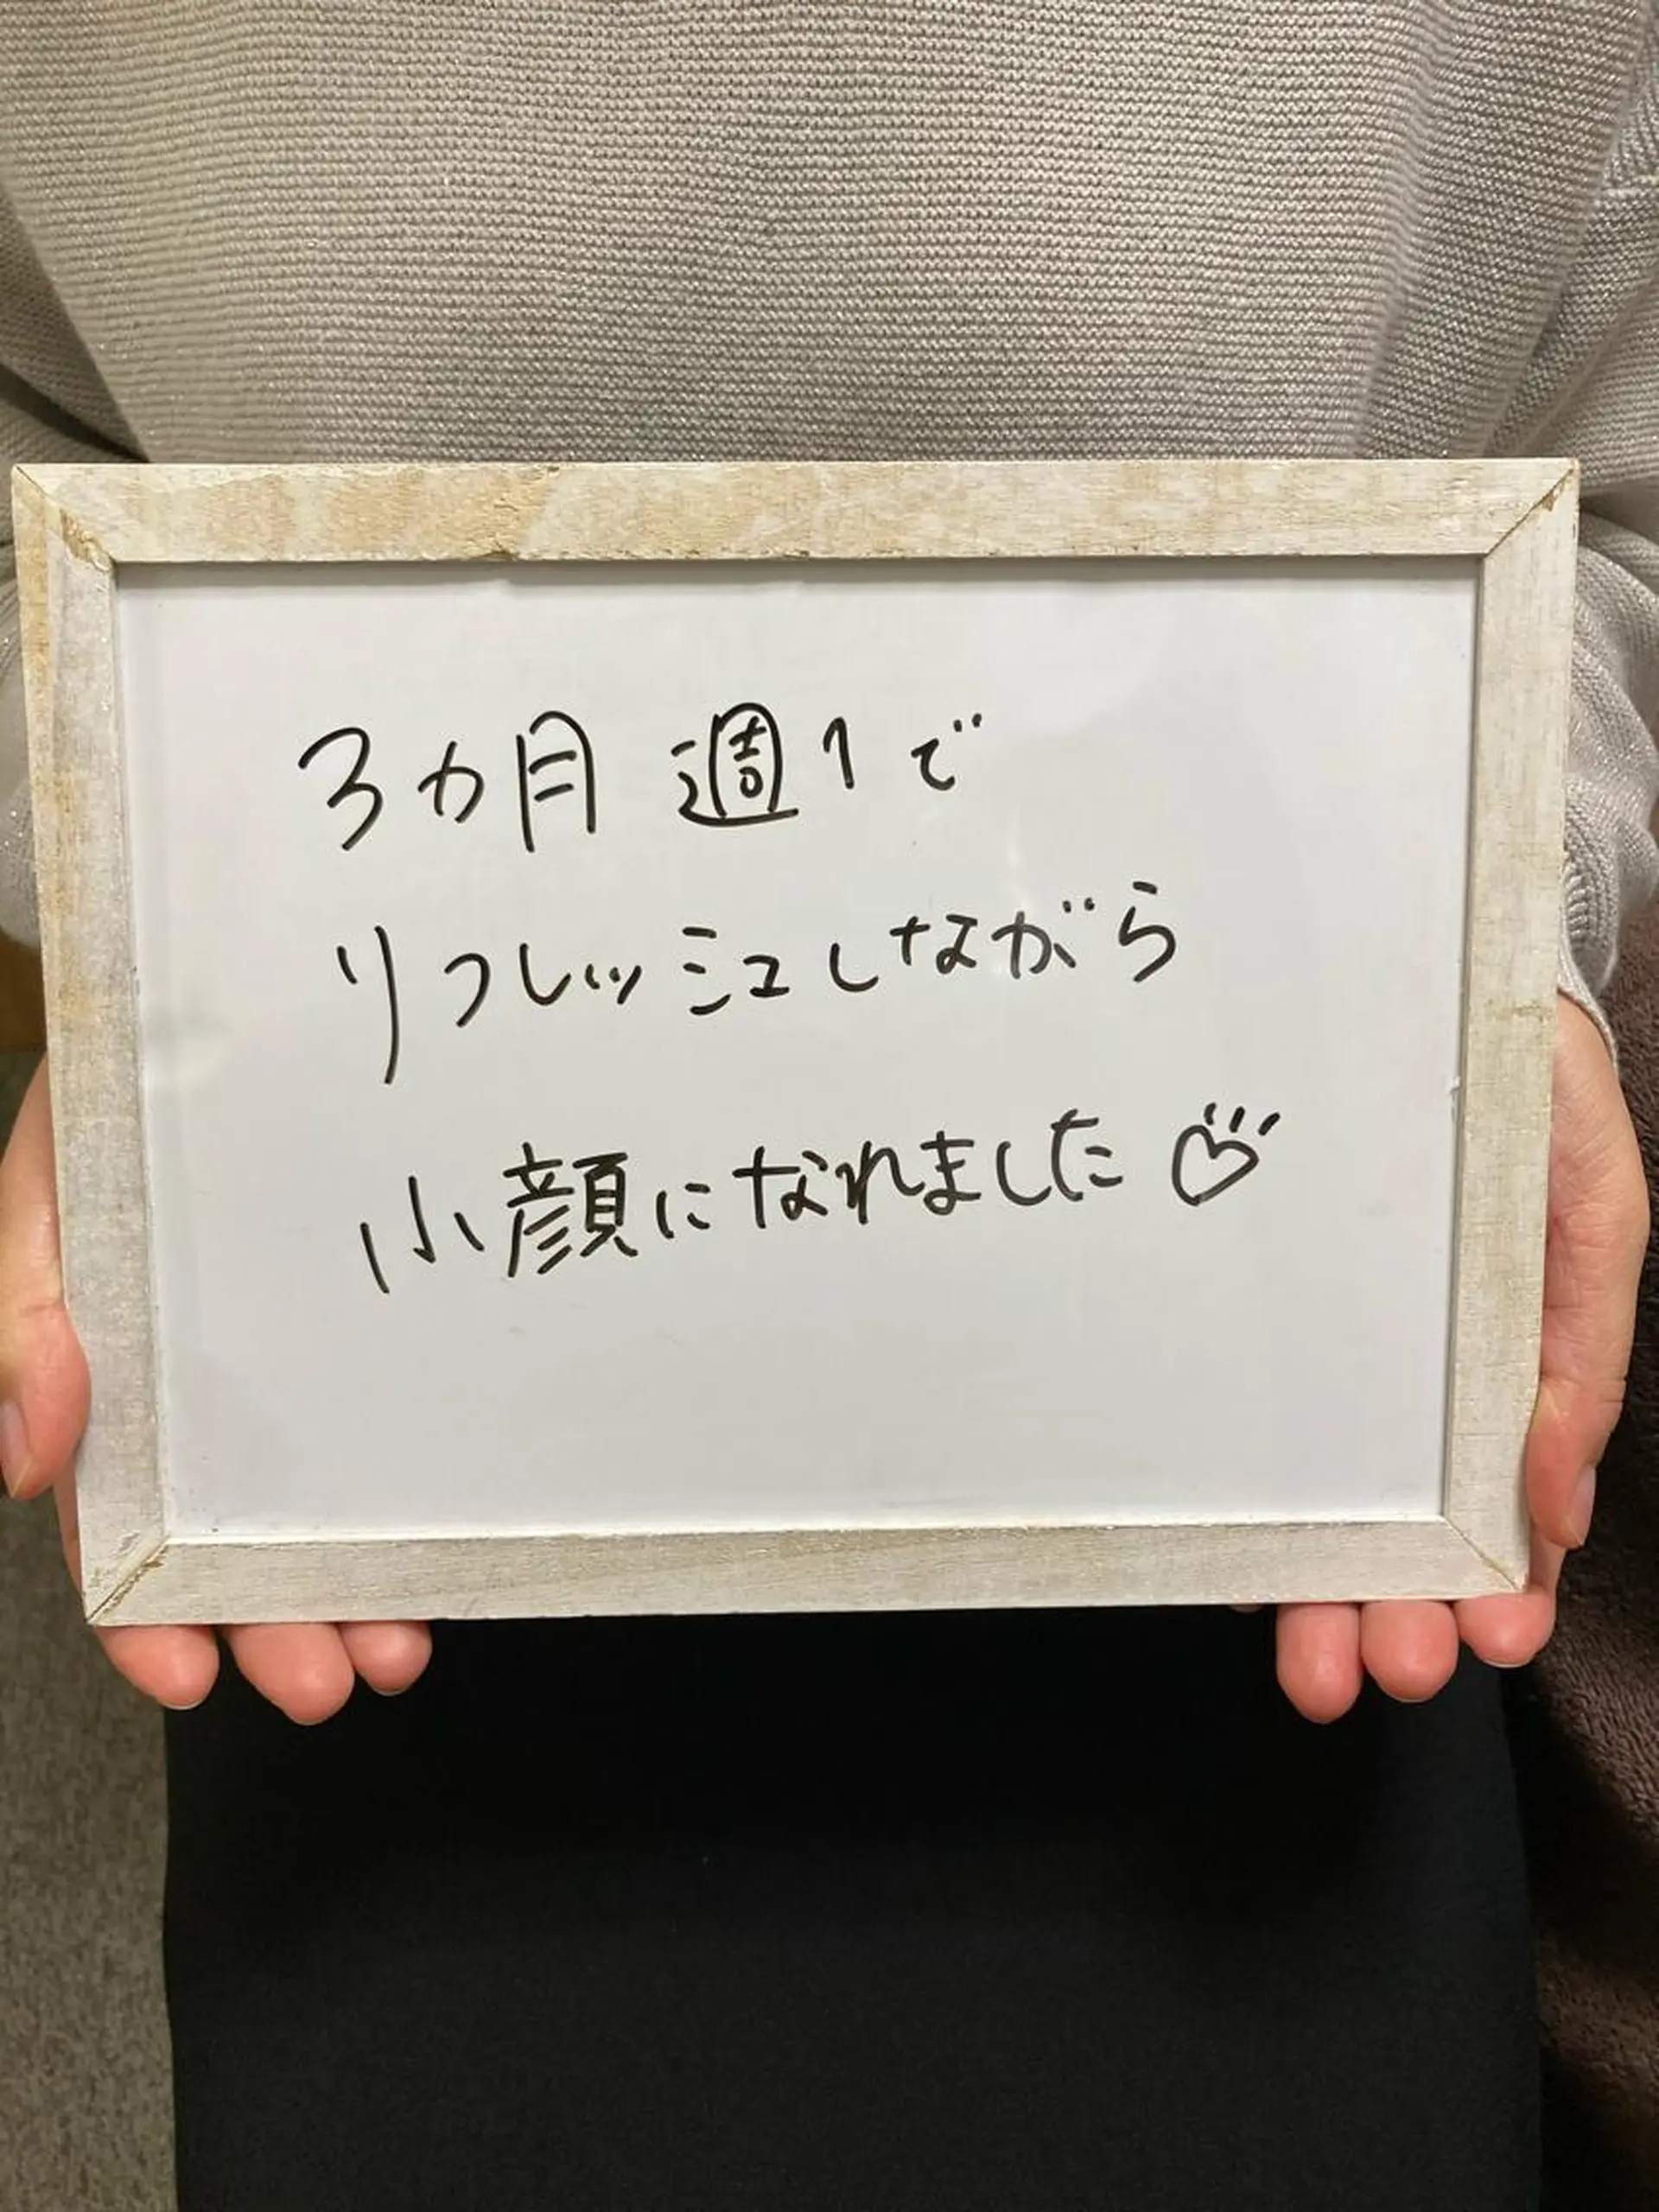 3カ月 週1で
リフレッシュしながら
小顔になれました♡